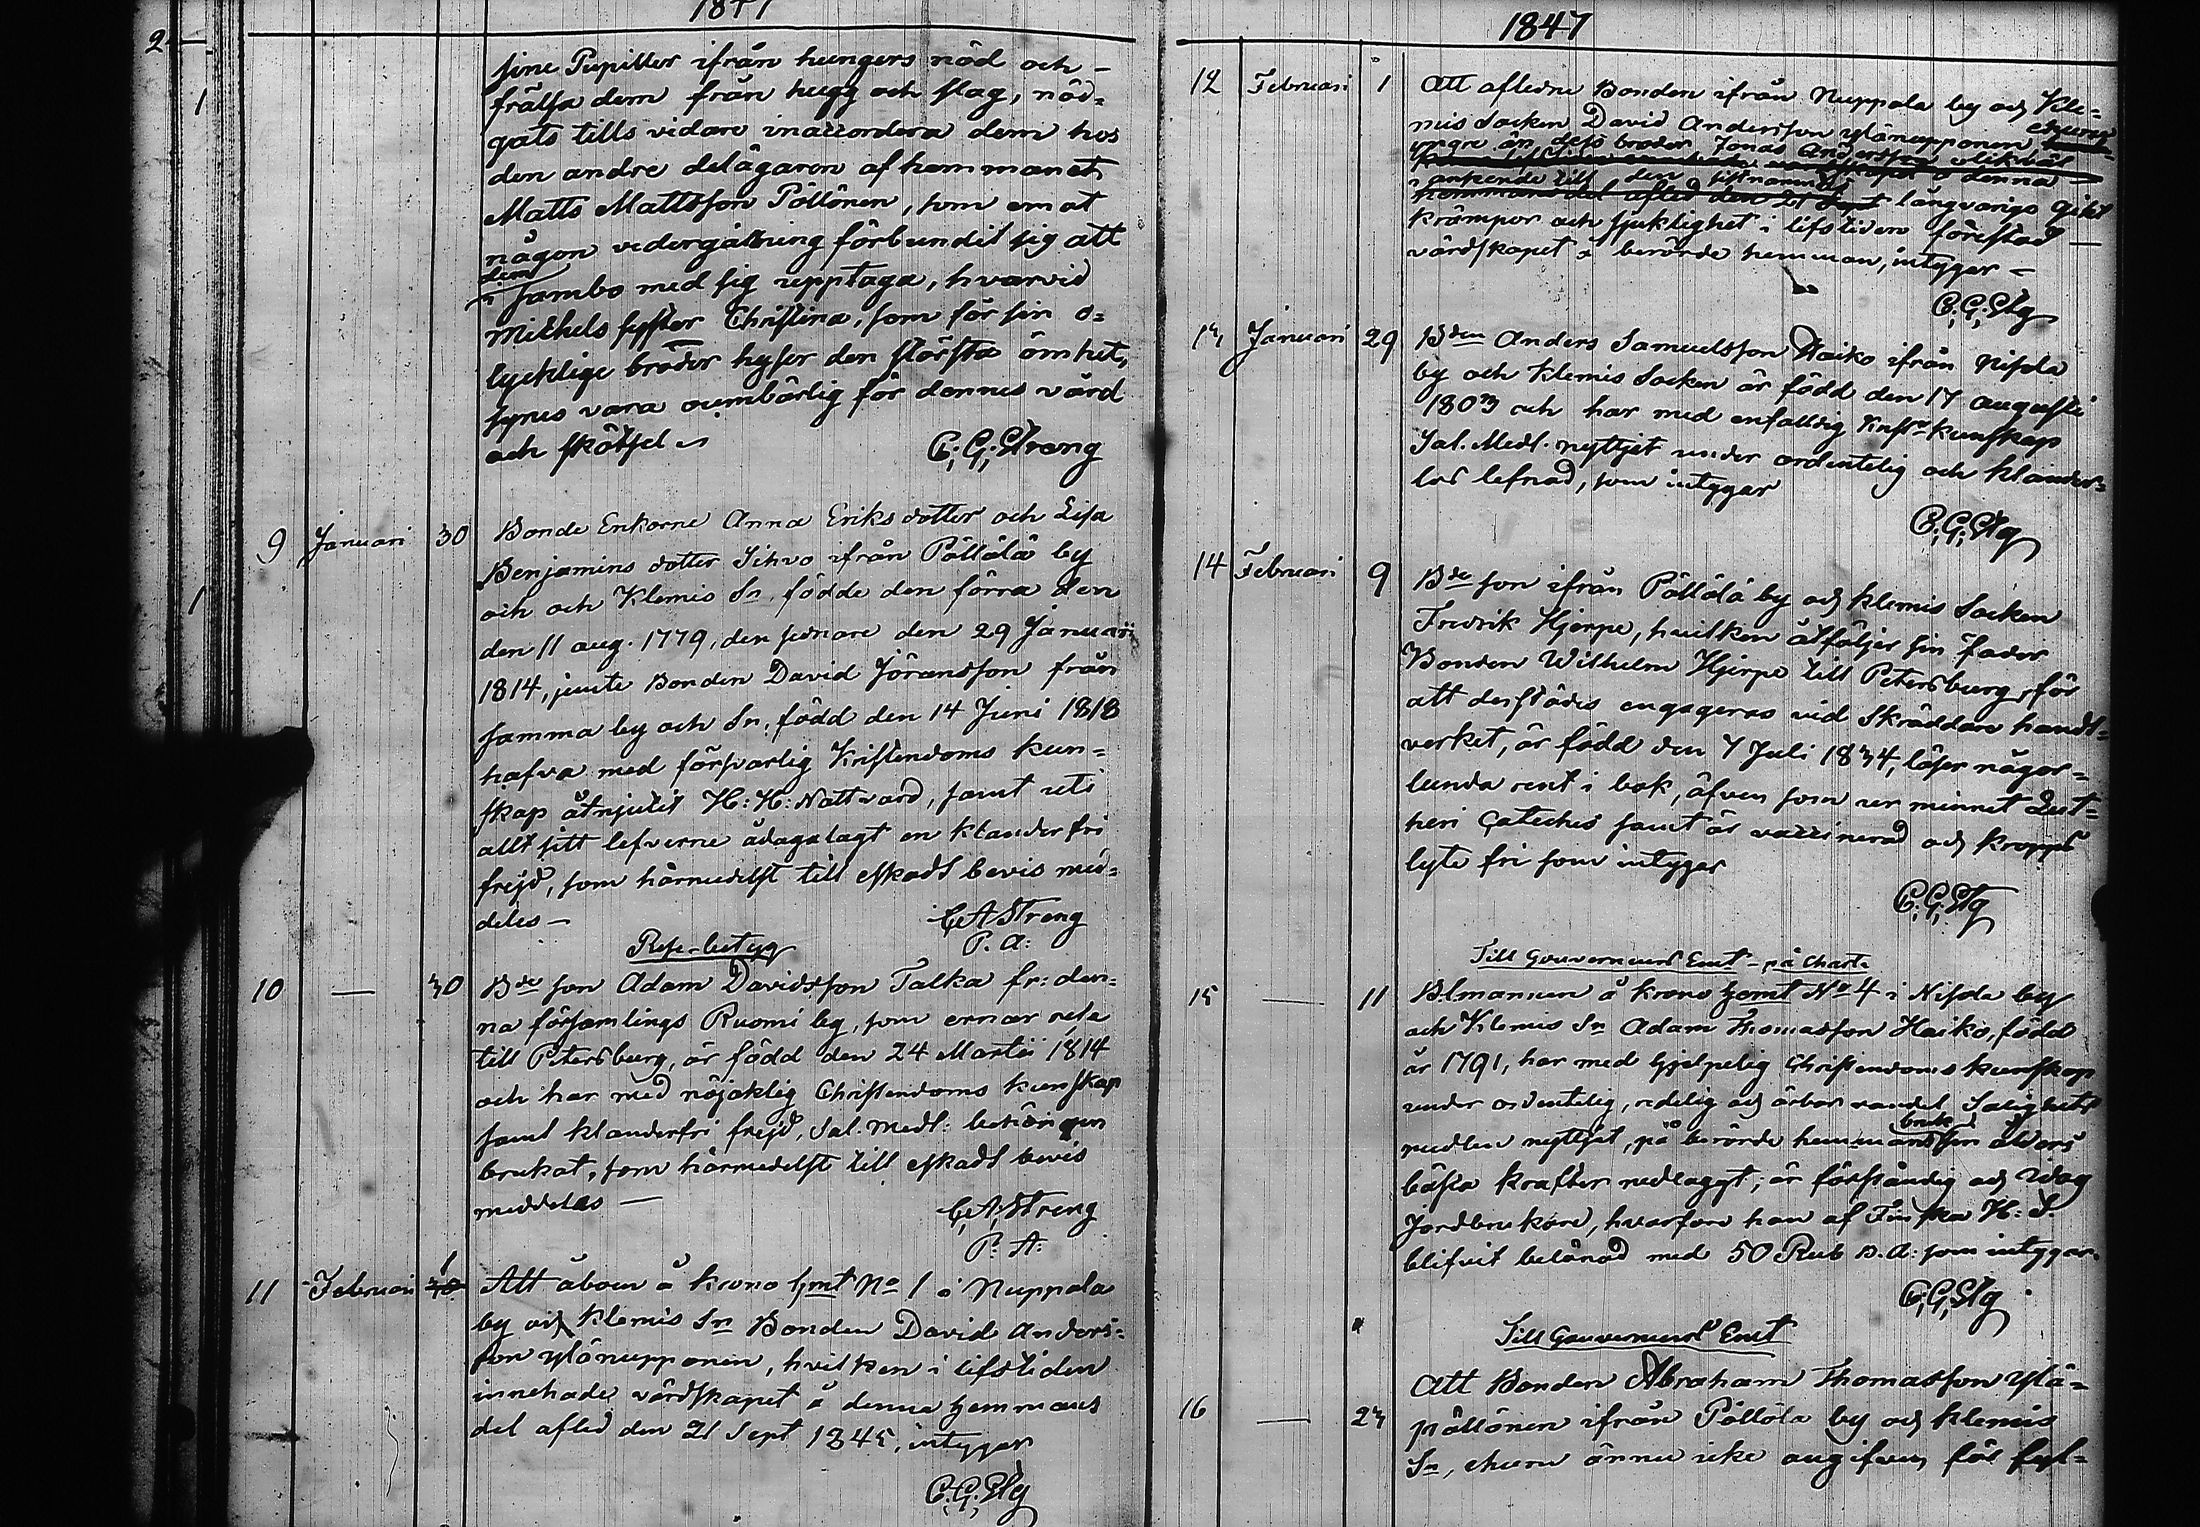 1847
2
1
1
sine Pupiller ifrån hungers nöd och –
frälsa dem från hugg och slag, nöd=
gats tills vidare inaccordera dem hos
den andre delägaren af hemmanet
Matts Mattsson Pöllönen, som emot
någon vedergällning förbundit sig att
dem
i sambo med sig upptaga, hvarvid
Michels syster Christina, som för sin o=
lycklige broder hyser den största ömhet,
synes vara oumbärlig för dennes vård
och skötsel
C: G: Streng
9 Januari 30 Bonde Enkorne Anna Eriksdotter och Lisa
Benjamins dotter Sihvo ifrån Pöllölä by
och och Klemis Sn, födde den förra den
den 11 aug. 1779, den senare den 29 Januari
1814, jemte Bonden David Jöransson från
samma by och Sn, född den 14 Juni 1818
hafva med försvarlig Kristendoms kun=
skap åtnjutit H: H: Nattvard, samt uti
allt sitt lefverne ådagalagt en klanderfri
frejd, som härmedelst till äskadt bevis med=
deles –
C A Streng
P. A:
Rese-betyg
10 — 30 Bde son Adam Davidsson Talka fr: den=
na församlings Ruomi by, som ernar resa
till Petersburg, är född den 24 Martii 1814
och har med nöjaktig Christendoms kunskap
samt klanderfri frejd, Sal. Medl: behörigen
brukat, som härmedelst till äskadt bevis
meddelas —
C. A. Streng
P. A:
11 Februari 1 30 Att åboen å krono Hmt No 1 i Nuppola
by och Klemis Sn Bonden David Anders=
son Ylönupponen, hvilken i lifstiden
innehade värdskapet å denna hemmans
del afled den 21 Sept 1845, intygar
C: G: Stg
1847
12 Februari 1 Att afledne Bonden ifrån Nuppola by och Kle=
mis Socken David Andersson Ylönupponen ehuru
yngre än dess broder Jonas Andersson likväl
i anseende till den sistnämnds långvariga gikt
krämpor och sjuklighet i lifstiden förestod
värdskapet å berörde hemman, intygar –
C: G: Stg
13 Januari 29 Bden Anders Samuelsson Haiko ifrån Nisola
by och Klemis Socken är född den 17 augusti
1803 och har med enfalldig Krist: kunskap
Sal. Medl. nyttjat under ordentelig och klander=
lös lefnad, som intygar
C: G: Stg
14 Februari 9 Bde son ifrån Pöllölä by och Klemis Socken
Fredrik Hjerpe, hvilken åtföljer sin fader
Bonden Wilhelm Hjerpe till Petersburg, för
att derstädes engageras vid Skräddare handt=
verket, är född den 7 Juli 1834, läser någor=
lunda rent i bok, äfven som ur minnet Lut=
heri Cateches samt är vaccinerad och kropps
lyte fri som intygar
C: G: Stg
Till Gouverneurs Emt – på Charta
15 — 11 Blmannen å krono Hemt No 4 i Nisola by
och Klemis Sn Adam Thomasson Haiko, född
år 1791, har med hjelpelig Christendoms kunskap
under ordentelig, redelig och ärbar vandel Salighets
bruk
medlen nyttjat, på berörde hemmans sin ålders
bästa krafter nedlaggt; är förståndig och idog
Jordbrukare, hvarföre han af Finska H: S.
blifvit belönad med 50 Rub B. A: som intygar
C: G: Stg
Till Gouverneurs Emt
16 — 23 Att Bonden Abraham Thomasson Ylä=
pöllönen ifrån Pöllölä by och Klemis
Sn, ehuru ännu icke angifven för fyl=